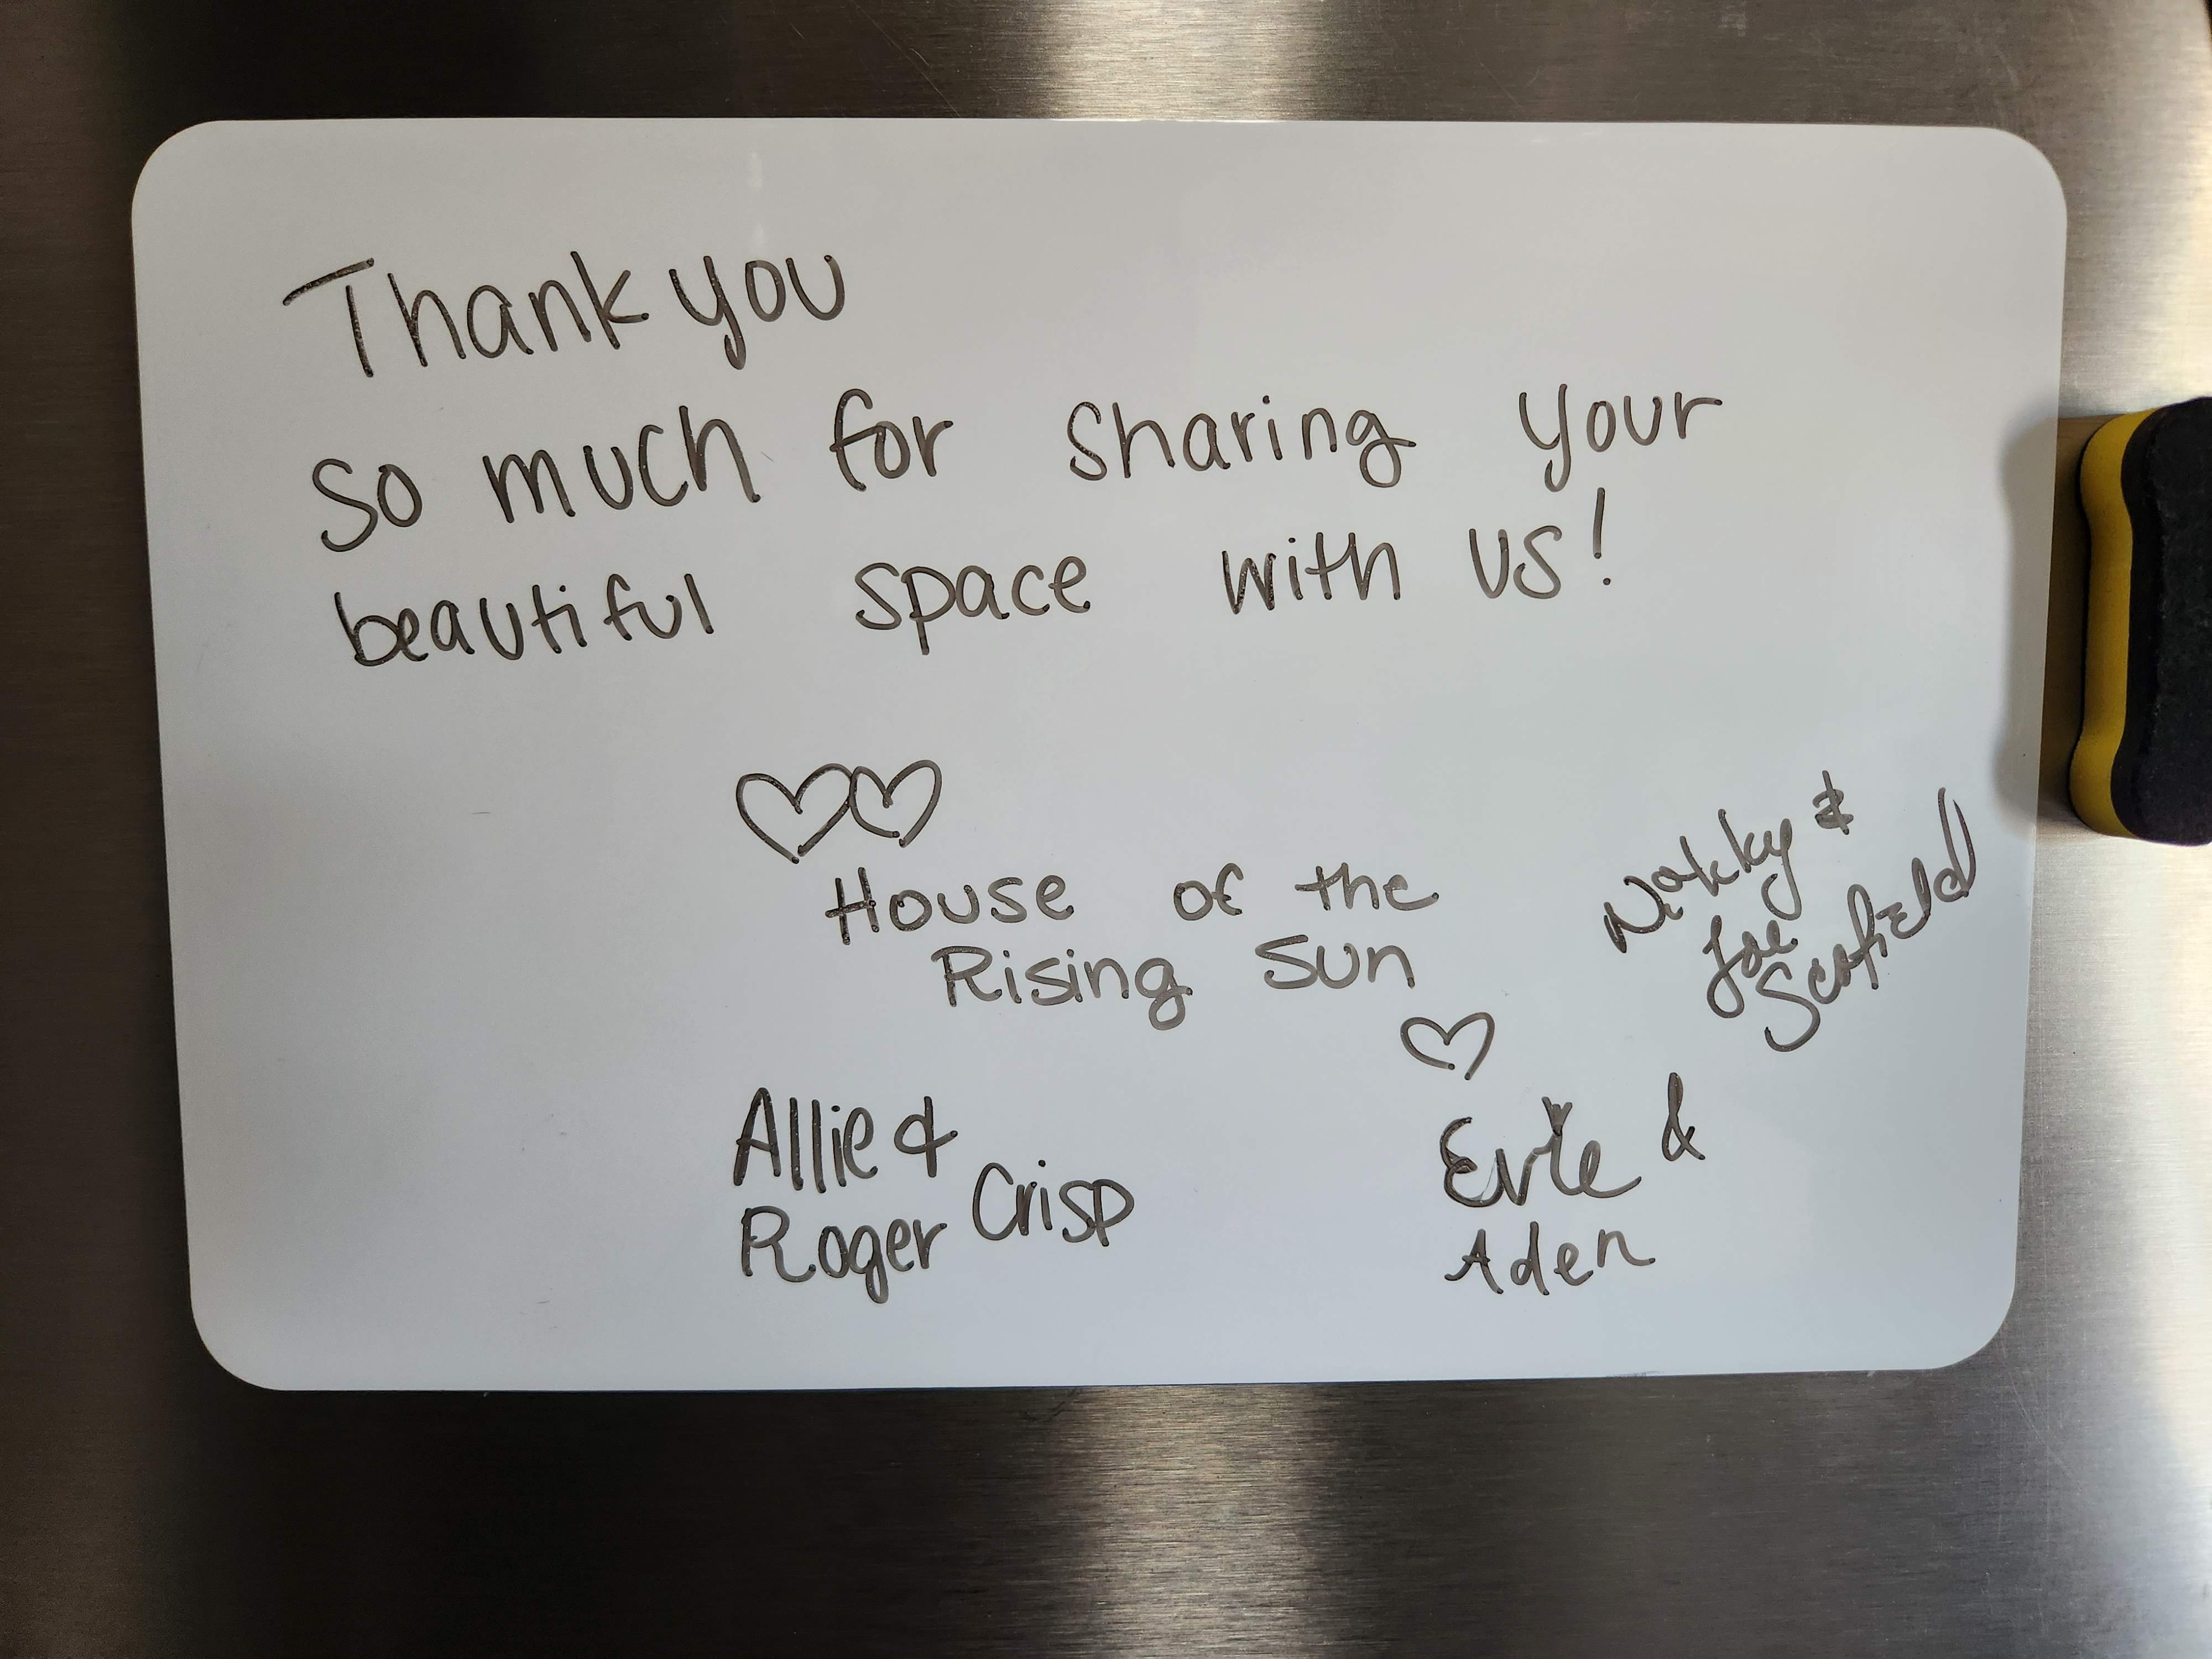 Thank you
so much for sharing your
beautiful space with us!
House of the
Rising Sun
&
Joe
Scofield
Allie &
Roger Crisp
Evie &
Aden